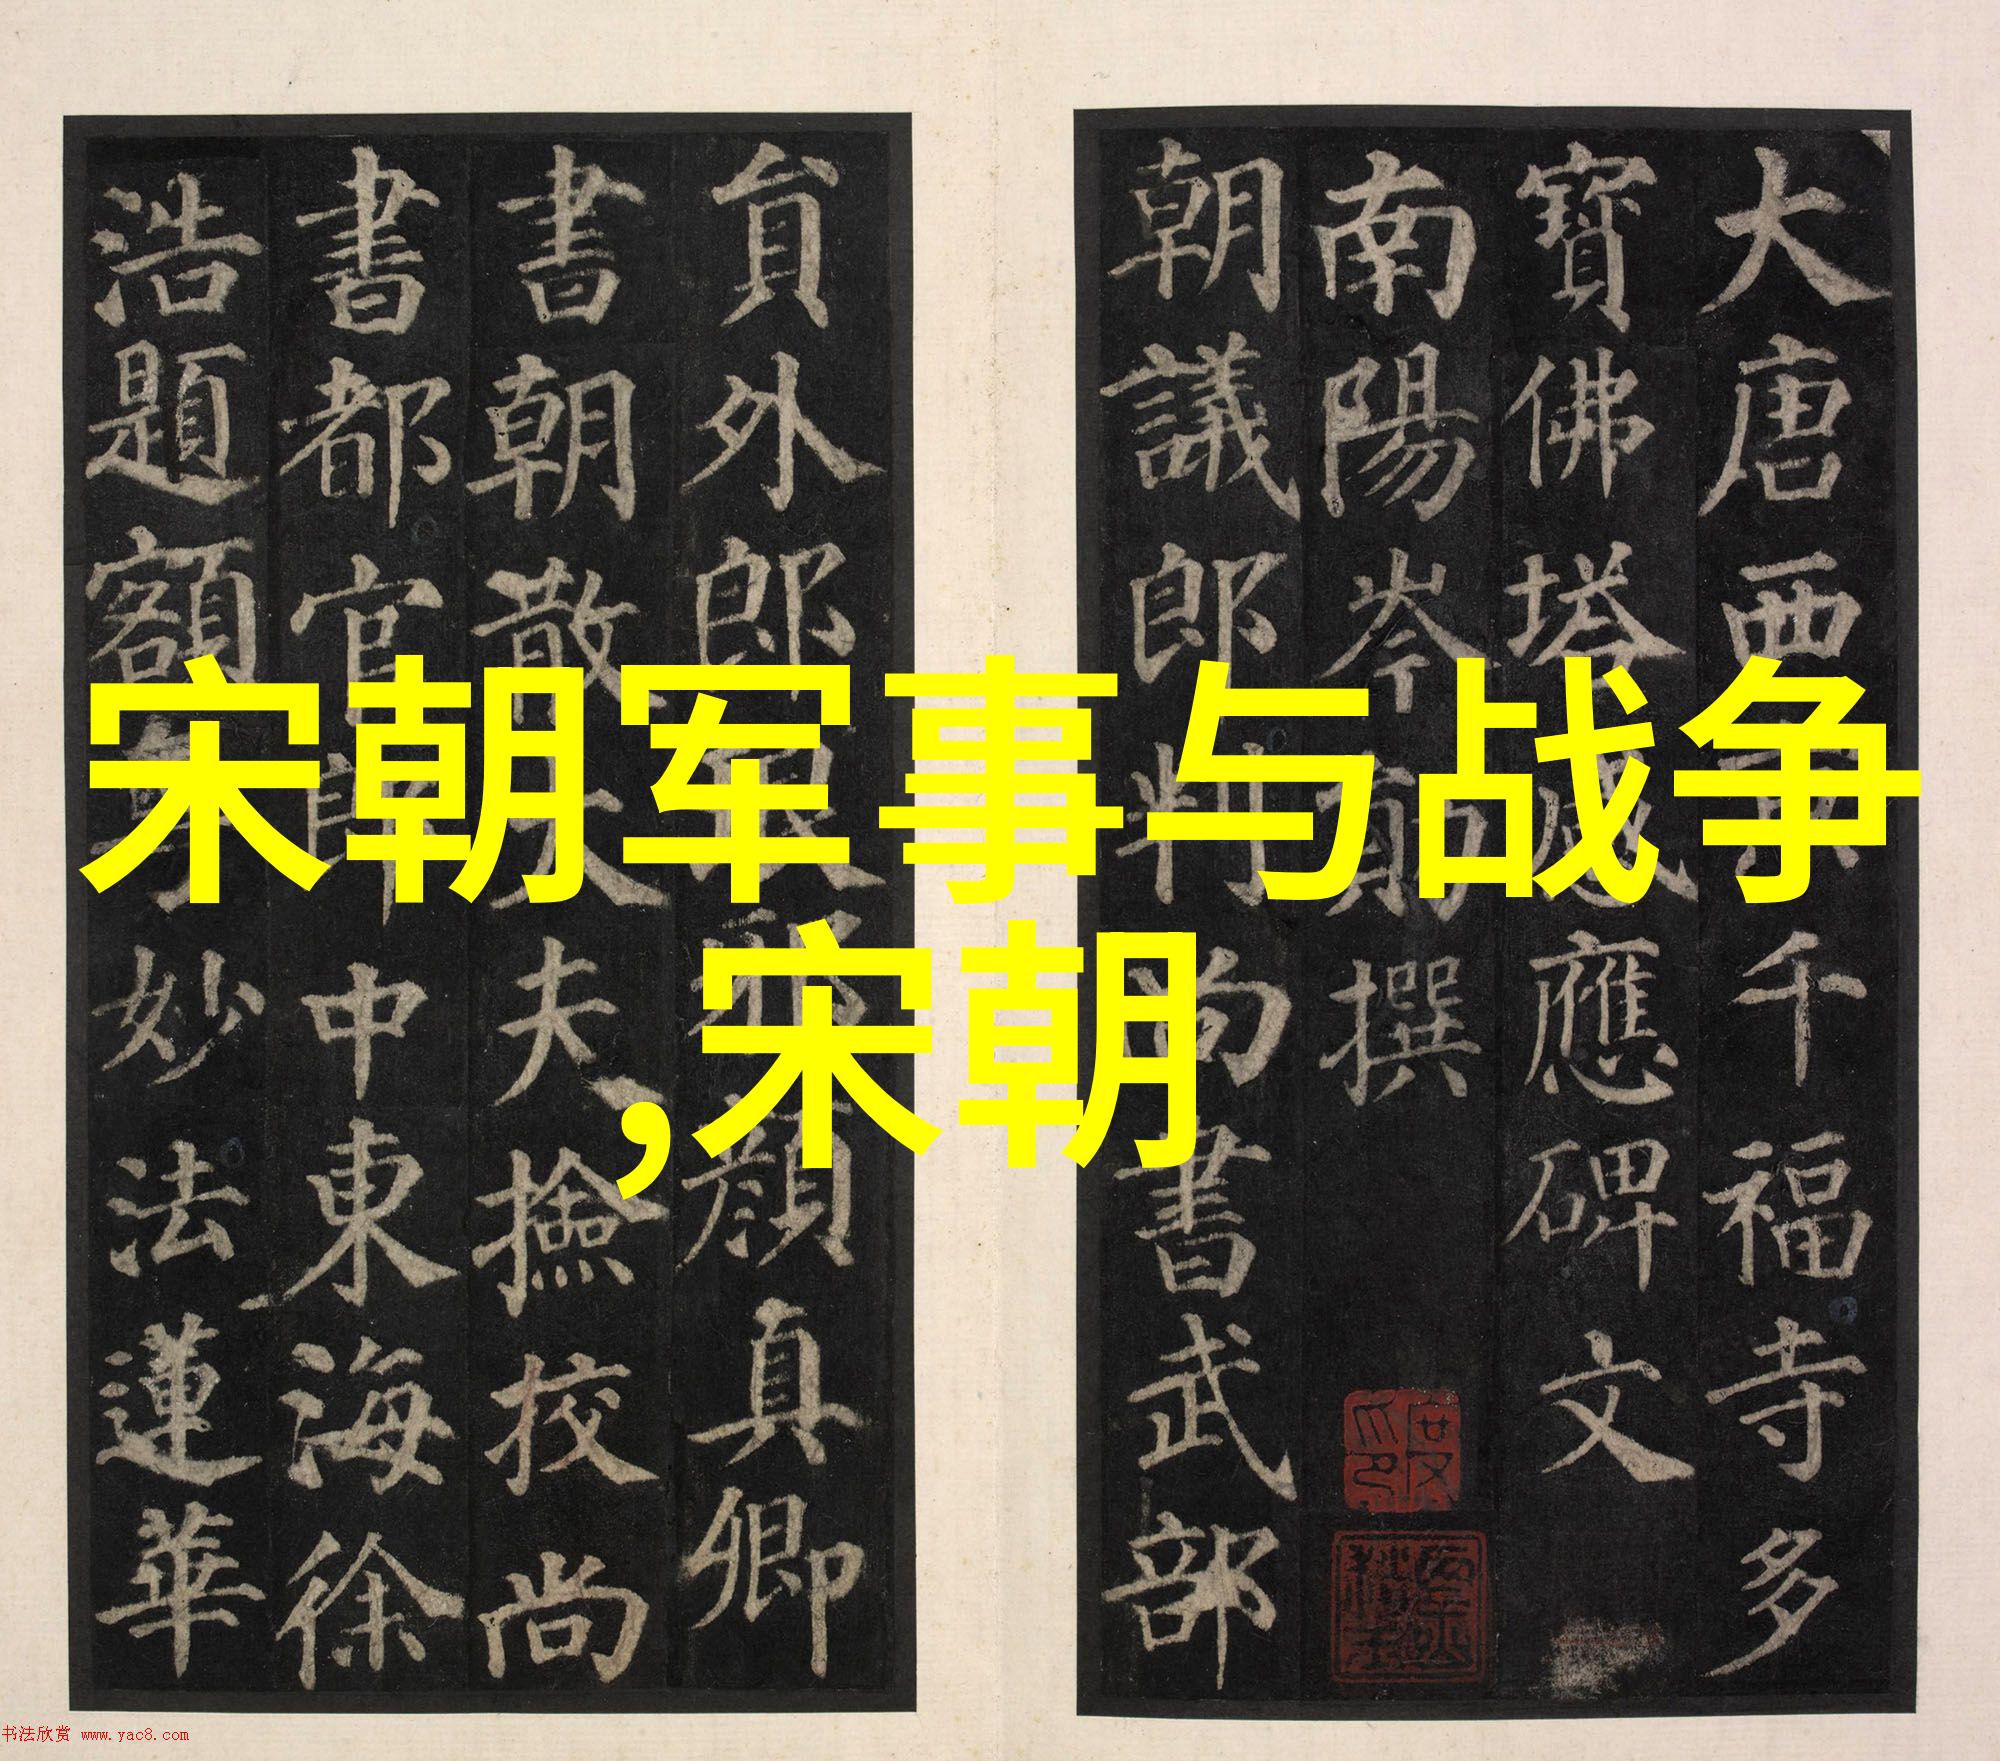 大唐西京千福寺多
寶佛塔感應碑文
南陽岑勛撰
朝議郎判尚書武部
貟外郎琅邪顏真卿
書朝散大夫撿校尚
書都官郎中東海徐
浩題額
妙法蓮華
宋朝军事与战争
,宋朝
书法欣赏 www.yac8.com